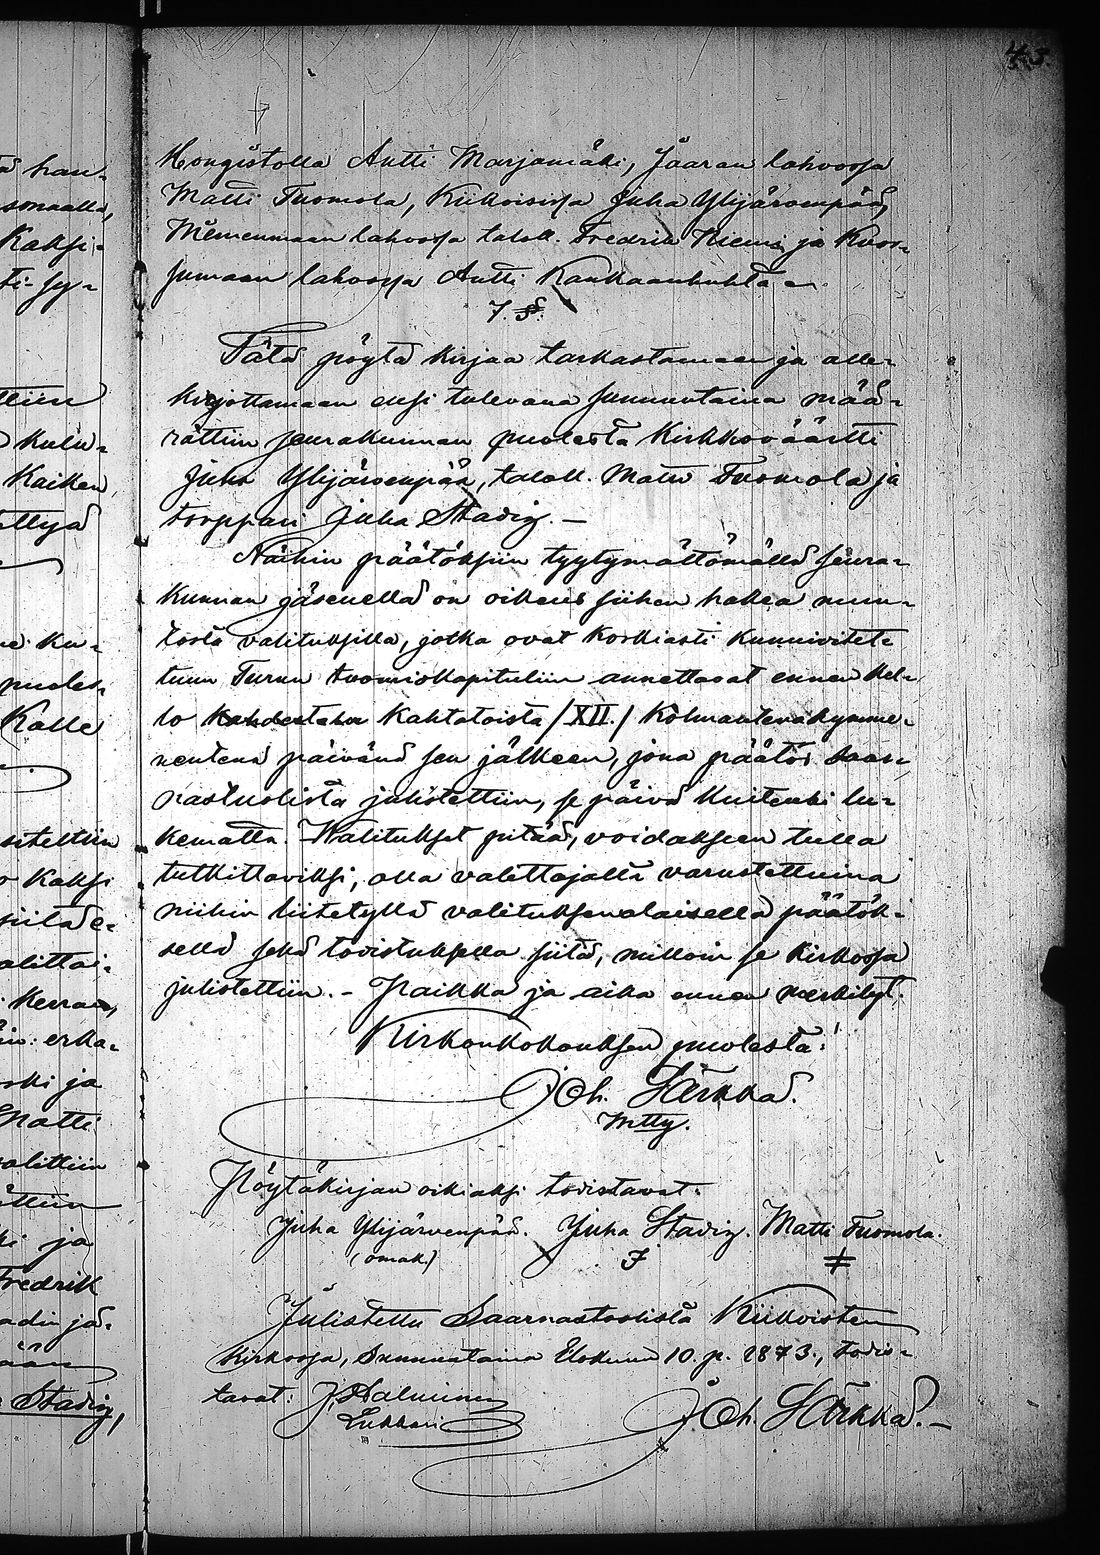 45.
Hongistolla Antti Marjamäki, Jaaran lahvossa
Matti Tuomola, Kiikoisissa Juha Ylijärvenpää,
lahvossa taloll. Fredrik Niemi ja Kuor-
sumaan lahvossa Antti Kankaanhuhta.
7. §.
Tätä pöytä kirjaa tarkastamaan ja alle-
kirjottamaan ensi tulevana sunnuntaina mää-
rättiin seurakunnan puolesta Kirkkoväärtti
Juha Ylijärvenpää, taloll. Matti Tuomola ja
torppari Juha Stadig. —
Näihin päätöksiin tyytymättömällä seura-
kunnan jäsenellä on oikeus siihen hakea muu-
tosta valituksilla, jotka ovat korkiasti kunnioitet-
tuun Turun tuomiokapituliin annettavat ennen kel-
lo kahtatoista /XII./ kolmantenakymme-
nentenä päivänä sen jälkeen, jona päätös saar-
nastuolista julistettiin, se päivä kuitenki lu-
kematta. Walitukset pitää, voidakseen tulla
tutkittaviksi, olla valittajalta varustettuina
niihin liitetyllä valituksenalaisella päätök-
sellä sekä todistuksella siitä, milloin se kirkossa
julistettiin. – Paikka ja aika ennen merkityt.
Kirkonkokouksen puolesta:
Joh. Särkkä.
Pöytäkirjan oikiaksi todistavat.
Juha Ylijärvenpää. Juha Stadig. Matti Tuomola.
(omak.)
Julistettu Saarnastoolista Kiikoisten
kirkossa, Sunnuntaina Elokuun 10. p. 1873., todis-
tavat: J. Salminen
Lukkari
Joh. Särkkä. —
kaksi-
ttiin
kulu-
Kaiken
ettyä
ku-
puoles-
Kalle
siteltiin
kaksi
alittai-
kerran,
erka-
ja
Matti
valittiin
ja
Fredrik
Stadig,